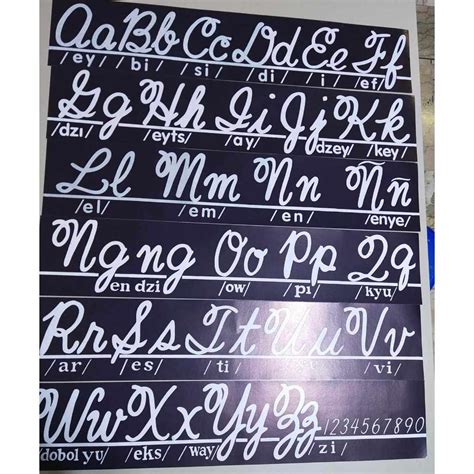 Aa Bb Cc Dd Ee Ff
/ey/ /bi/ /si/ /di/ /i/ /ef/
Gg Hh Ii Jj Kk
/dzı/ /eyts/ /ay/ dzey/ /key/
Ll Mm Nn Ññ
/el/ /em/ /en/ /enye/
Ng ng Oo Pp Qq
en dzi /ow/ /pi/ /kyu/
Rr Ss Tt Uu Vv
/ar/ /es/ /ti/ /vi/
Ww Xx Yy Zz 1234567890
/dobol yu/ /eks/ /way/ zi/